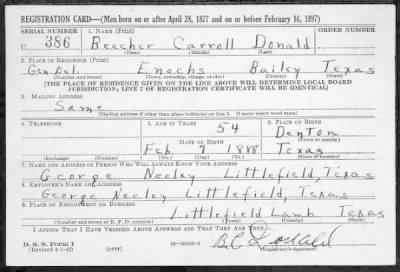 REGISTRATION CARD—(Men born on or after April 28, 1877 and on or before February 16, 1897)
SERIAL NUMBER 1. NAME (Print) ORDER NUMBER
U 386 Beecher Carroll Donald
(First) (Middle) (Last)
2. PLACE OF RESIDENCE (Print)
Gen Del. Enochs Bailey Texas
(Number and street) (Town, township, village, or city) (County) (State)
[THE PLACE OF RESIDENCE GIVEN ON THE LINE ABOVE WILL DETERMINE LOCAL BOARD
JURISDICTION; LINE 2 OF REGISTRATION CERTIFICATE WILL BE IDENTICAL]
3. MAILING ADDRESS
Same
[Mailing address if other than place indicated on line 2. If same insert word same]
4. TELEPHONE 5. AGE IN YEARS 6. PLACE OF BIRTH
54 Denton
DATE OF BIRTH (Town or county)
Feb. 7 1888 Texas
(Exchange) (Number) (Mo.) (Day) (Yr.) (State or country)
7. NAME AND ADDRESS OF PERSON WHO WILL ALWAYS KNOW YOUR ADDRESS
George Neeley Littlefield, Texas
8. EMPLOYER'S NAME AND ADDRESS
George Neeley Littlefield, Texas
9. PLACE OF EMPLOYMENT OR BUSINESS
Littlefield Lamb Texas
(Number and street or R. F. D. number) (Town) (County) (State)
I AFFIRM THAT I HAVE VERIFIED ABOVE ANSWERS AND THAT THEY ARE TRUE.
D. S. S. Form 1
(Revised 4-1-42) (over) B C Donald
(Registrant's signature)